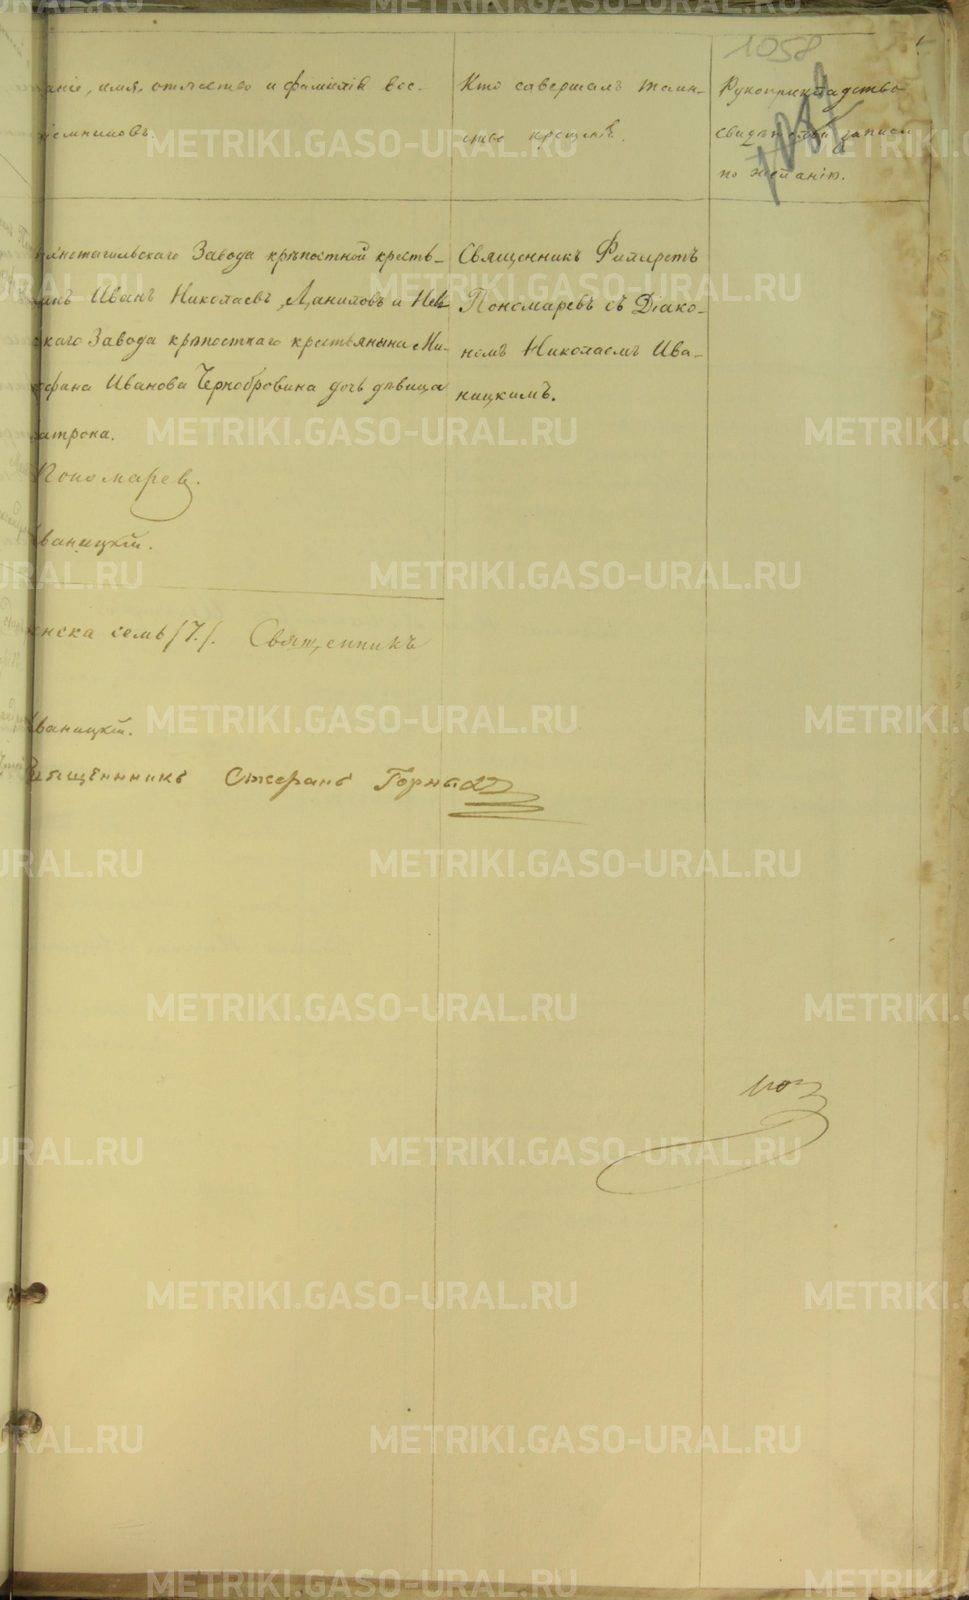 1058
аніе, имя, отчество и фамилія вос-
іемниковъ.
Кто совершалъ таин-
ство крещенія.
Рукоприкладство
свидѣтелей записи
по желанію.
нетагильскаго Завода крѣпостной кресть-
инъ Иванъ Николаевъ Даниловъ и Невь
скаго Завода крѣпостнаго крестьянина Ми-
рофана Иванова Чернобровина дочь дѣвица
атрона.
Священникъ Филаретъ
Пономаревъ съ Діако-
номъ Николаемъ Ива-
ницкимъ.
Пономарев.
Иваницкій.
енска семь /7./. Священникъ
Иваницкій.
Священникъ Стефанъ
METRIKI.GASO-URAL.RU